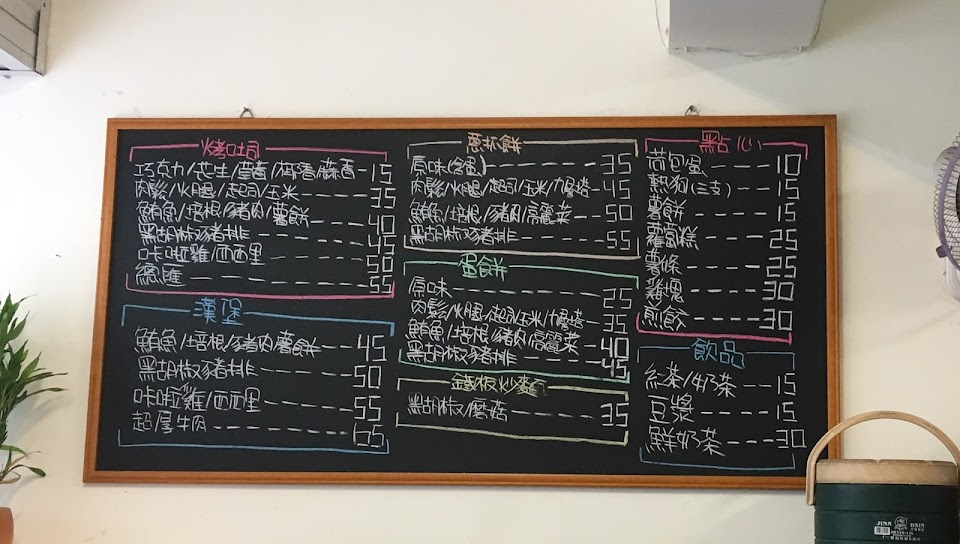 烤吐司
巧克力/花生/草莓/椰香蒜香--15
肉鬆/火腿/起司/玉米----35
鮪魚/培根/豬肉/薯餅---40
黑胡椒豬排--------45
咔啦雞/西西里-----50
總匯----------55
漢堡
鮪魚/培根/豬肉薯餅---45
黑胡椒豬排-------50
咔啦雞/西西里------55
超厚牛肉---------65
蔥抓餅
原味(含蛋)-------35
肉鬆/火腿/起司/玉米/九層塔--45
鮪魚/培根/豬肉/高麗菜--50
黑胡椒豬排------55
蛋餅
原味---------25
肉鬆/火腿/起司/玉米/九層塔--35
鮪魚/培根/豬肉/高麗菜--40
黑胡椒豬排------45
鐵板炒麵
黑胡椒/磨菇-----35
點心
荷包蛋---10
熱狗(三支)---15
薯餅-----15
蘿蔔糕----25
薯條-----25
雞塊----30
煎餃----30
飲品
紅茶/奶茶---15
豆漿-----15
鮮奶茶---30
JINN HSIN